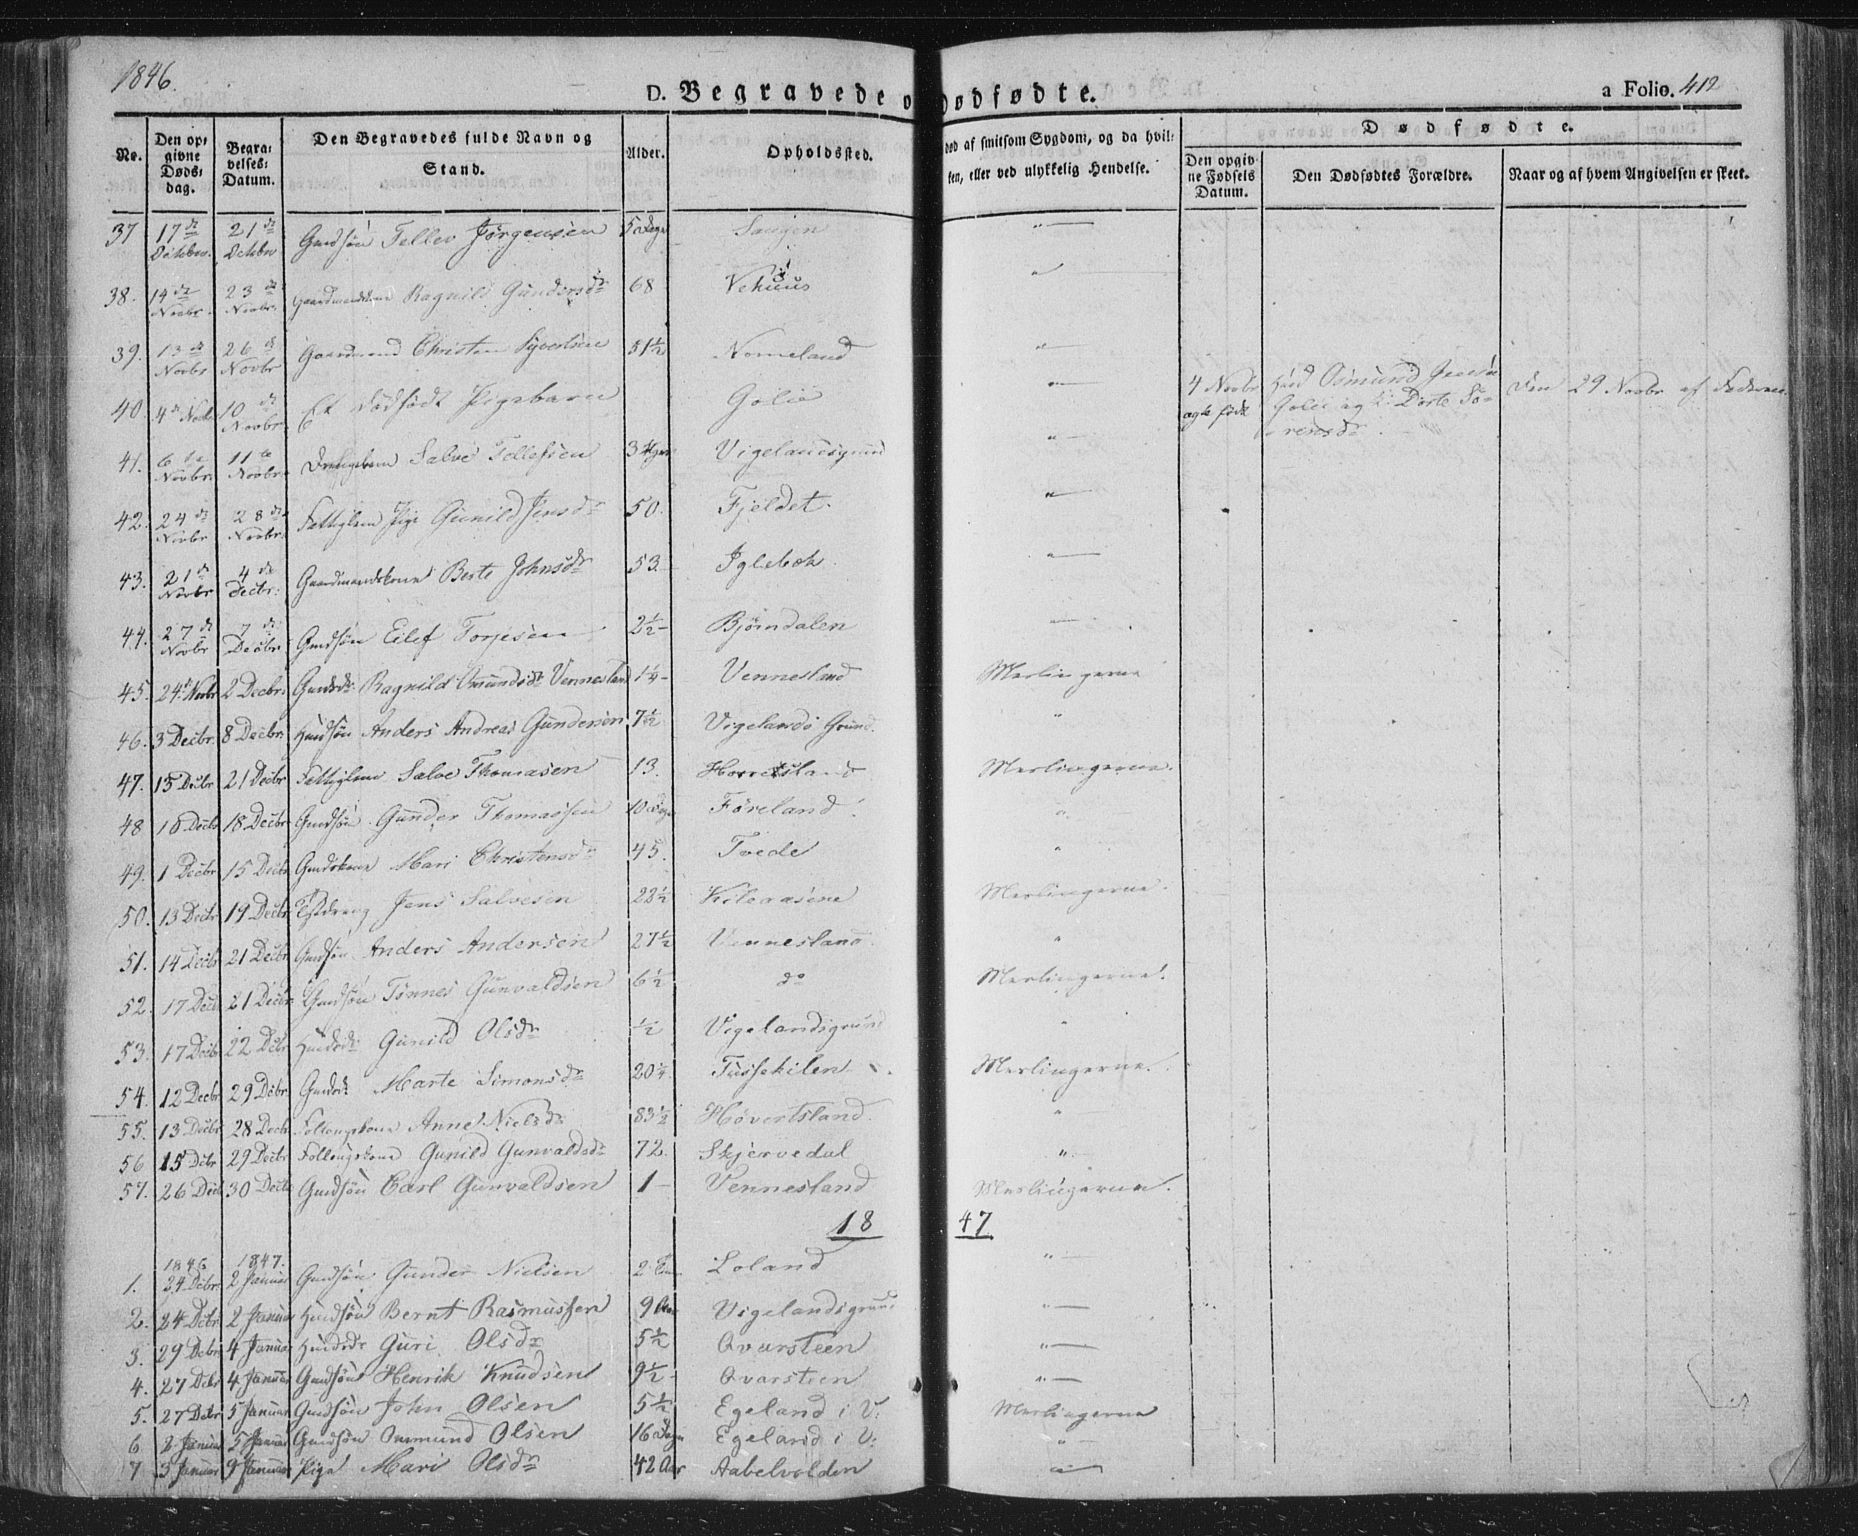 1846.
D. Begravede o Dødfødte.
a Folio. 412
No.
Den op-
givne
Døds-
dag.
Begra-
velses-
Datum.
Den Begravedes fulde Navn og
Stand.
Alder.
Opholdssted.
død af smitsom Sygdom, og da hvil-
ken, eller ved ulykkelig Hendelse.
Dødfødte.
Den opgiv-
ne Fødsels
Datum.
Den Dødfødtes Forældre.
Naar og af hvem Angivelsen er skeet.
37 17de 21de Gmdsön Tellev Jörgensen 5 Dage
38. 14de Novbr. 23de Novbr. Gaardmandskone Ragnild Gundersdr 68 Vehuus
39. 13de Novbr 26de Novbr Gaardmand Christen Syvertsen 51½ Nomeland
40. 4de Novbr 10de Novbr Et dödfödt Pigebarn Golie 4 Novbr Osmund Golie og Dorte Sö- rensdr. Den 29 Novbr af Faderen
41. 6te Novbr. 11te Novbr. Salve Tellefsen 3 Vigelandsgrund
42. 24de Novbr 28de Novbr. Pige Gunild Jensdr 50. Fjeldet.
43. 21de Novbr 4de Decbr. Gaardmandskone Berte Johnsdr 53. Iglebek
44. 27de Novbr 7de Decbr Gmdsön Eilef Torjesen 2½ Bjørndalen
45. 24de Novbr 2 Decbr. Gmdsdr. Ragnild Omundsdr Vennesland 1¼ Vennesland Meslingerne
46. 3 Decbr. 8 Decbr. Hmdsön Anders Andreas Gundersen 7½ Vigelands Grund. "
47. 15 Decbr 21 Decbr Salve Thomasen 13. Meslingerne.
48 16 Decbr 18 Decbr Gmdsön Gunder Thomassen 10 Dage Föreland. "
49. 1 Decbr 15 Decbr Gmdskone Mari Christensdr 45. Tvede "
50. 13 Decbr 19 Decbr Jens Salvesen 22½ Kileaasene Meslingerne.
51. 14 Decbr 21 Decbr Gmdsön Anders Andersen 27½ Vennesland. "
52. 17 Decbr 21 Decbr Gmdsön Tönnes Gunvaldsen 6½ do Meslingerne.
53. 17 Decbr 22 Decbr Hmdsdr Gunild Olsdr ½ Vigelandsgrund "
54. 12 Decbr 29 Decbr. Gmdsdr Marte Simonsdr 20¼ Tusfekilen Meslingerne.
55. 13 Decbr 28 Decbr Anne Nielsdr 83½ Hövertsland. "
56 15 Decbr 29 Decbr Gunild Gunvaldsdr 72. Skjervedal "
57. 26 Decbr 30 Decbr Gmdsön Carl Gunvaldsen 1 Vennesland Meslingerne.
18 47
1846 1847.
1. 24 Decbr 2 Januar Gmdsön Gunder Nielsen 2 Loland "
2. 24 Decbr 2 Januar Hmdsön Bernt Rasmussen 9 Vigelandsgrund "
3. 29 Decbr 4 Januar Hmdsdr Guri Olsdr 5½ Qvarsteen "
4. 27 Decbr 4 Januar Gmdsön Henrik Knudsen 9½ Qvarsteen "
5. 27 Decbr 5 Januar Gmdsön John Olsen 5½ Egeland i V: Meslingerne
6 2 Januar 5 Januar Gmdsön Ommund Olsen 16 Dage Egeland i V: "
7 3 Januar 9 Januar Pige Mari Olsdr 42 Aar Aabelvolden "